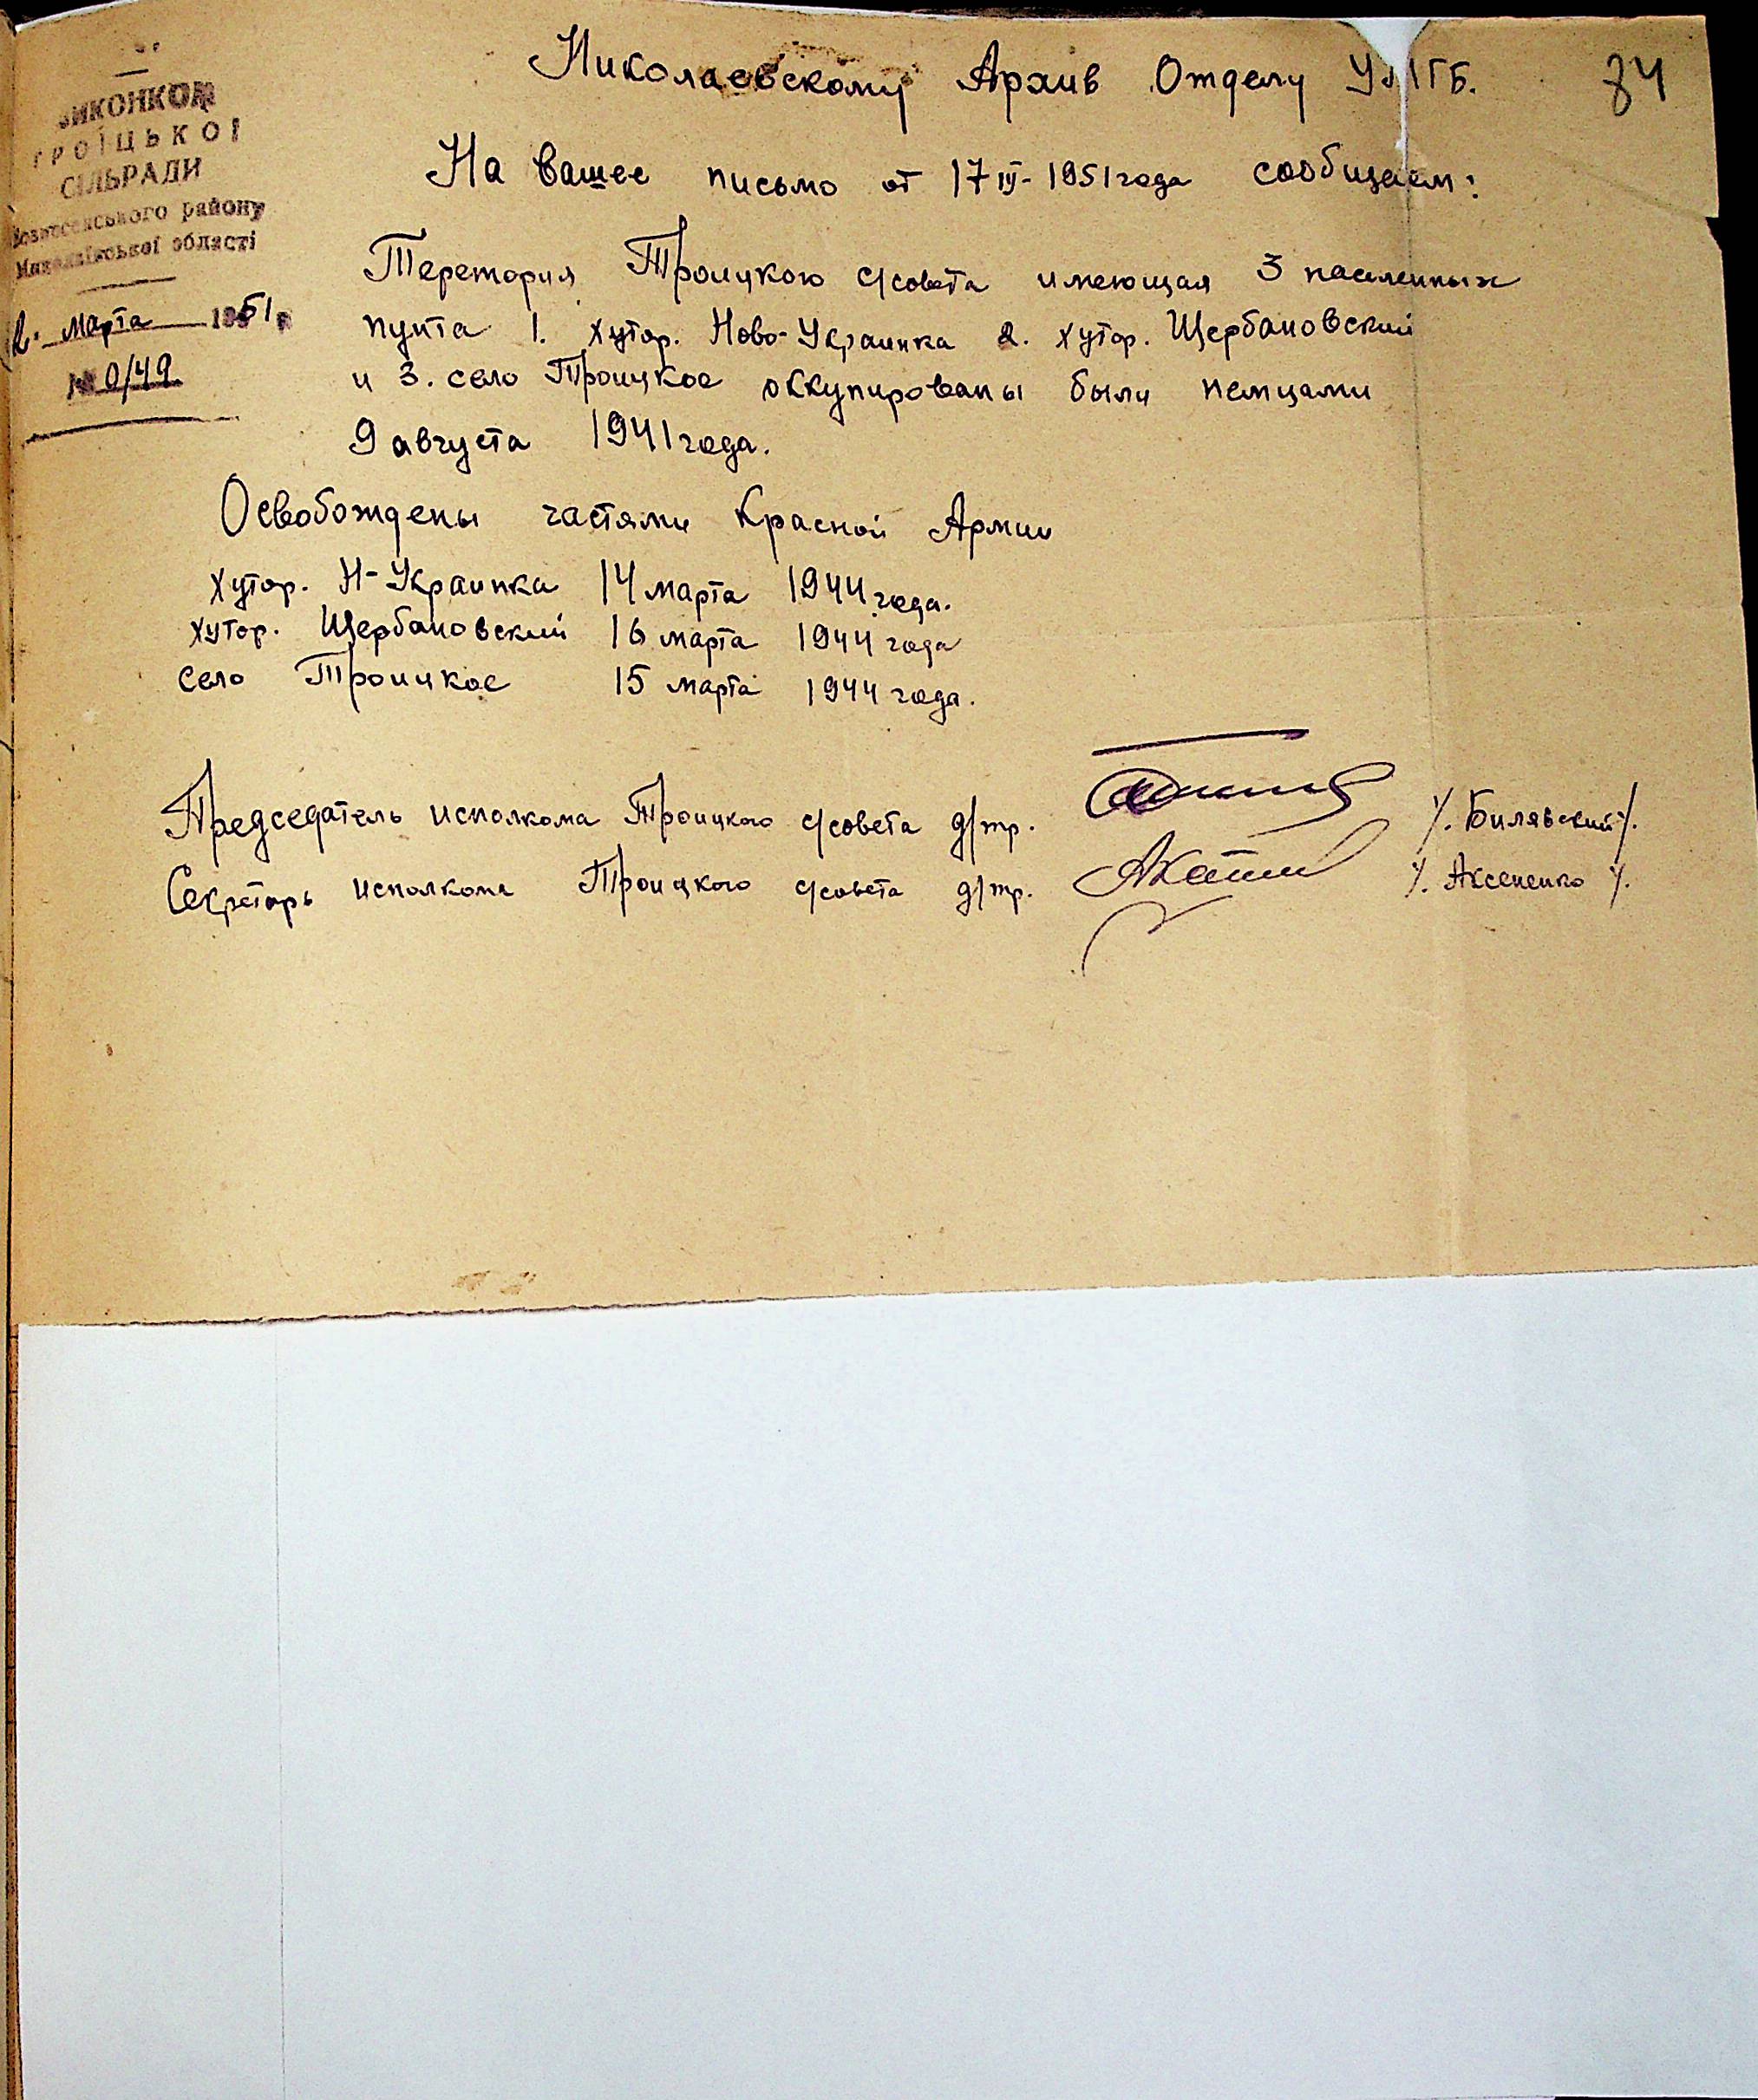 84
ВИКОНКОМ
ТРОЇЦЬКОЇ
СІЛЬРАДИ
Вознесенського району
Миколаївської області
марта 1951 р
№ 0/49
Николаевскому Архив Отделу УМГБ.
На вашее письмо от 17 III - 1951 года сообщаем:
Теретория Троицкого с/совета имеющая 3 населенных
пункта 1. хутор. Ново-Украинка 2. хутор. Щербановский
и 3. село Троицкое оккупированы были немцами
9 августа 1941 года.
Освобождены частями Красной Армии
хутор. Н-Украинка 14 марта 1944 года.
хутор. Щербановский 16 марта 1944 года
село Троицкое 15 марта 1944 года.
Председатель исполкома Троицкого с/совета д/тр. /. Билявский /.
Секретарь исполкома Троицкого с/совета д/тр. /. Аксененко /.